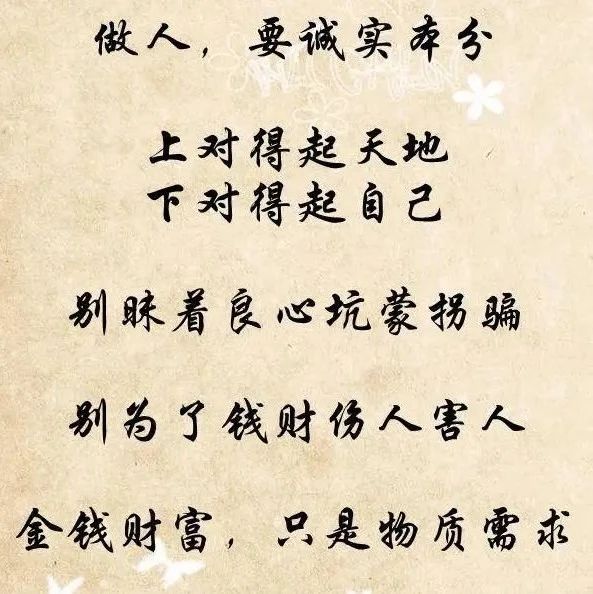 做人，要诚实本分
上对得起天地
下对得起自己
别昧着良心坑蒙拐骗
别为了钱财伤人害人
金钱财富，只是物质需求